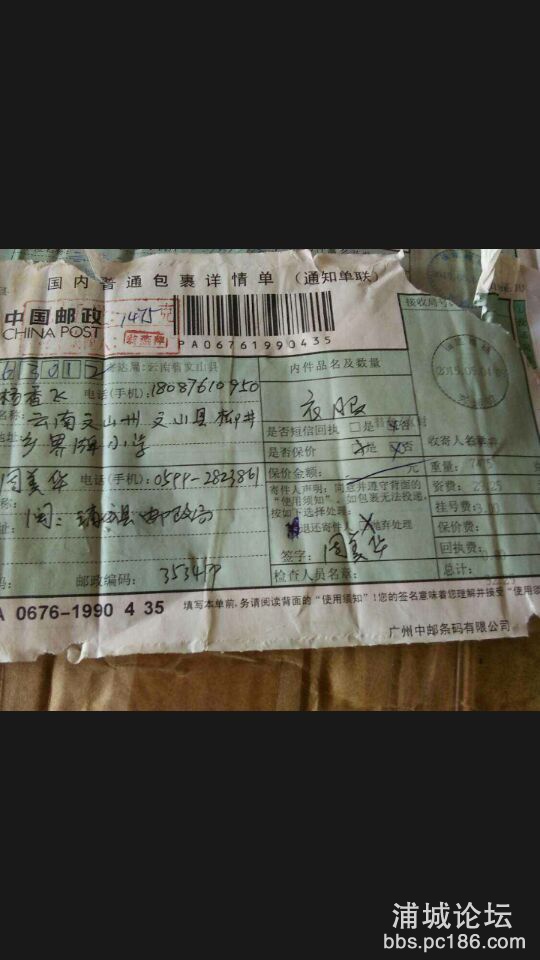 国内普通包裹详情单 (通知单联)
接收局号
中国邮政
CHINA POST
1475克
PA06761990435
内件品名及数量
衣服
杨 飞 电话(手机):18087610950
云南文山州 文山县
乡界牌小学
是否短信回执 □是
是否保价 是 否
收寄人员
保价金额: 元
重量: 克
周美华 电话(手机):0599-2823861
寄件人声明:同意并遵守背面的
“使用须知”,如包裹无法投递,
按如下选择处理:
退还寄件人 抛弃处理
资费: 29.25
挂号费:3.00
保价费:
回执费:
闽:浦城县邮政局
签字: 周美华
邮政编码: 353400
检查人员名章:
总计:
A 0676-1990 4 35
填写本单前,务请阅读背面的“使用须知”!您的签名意味着您理解并接受“使用须
广州中邮条码有限公司
浦城论坛
bbs.pc186.com